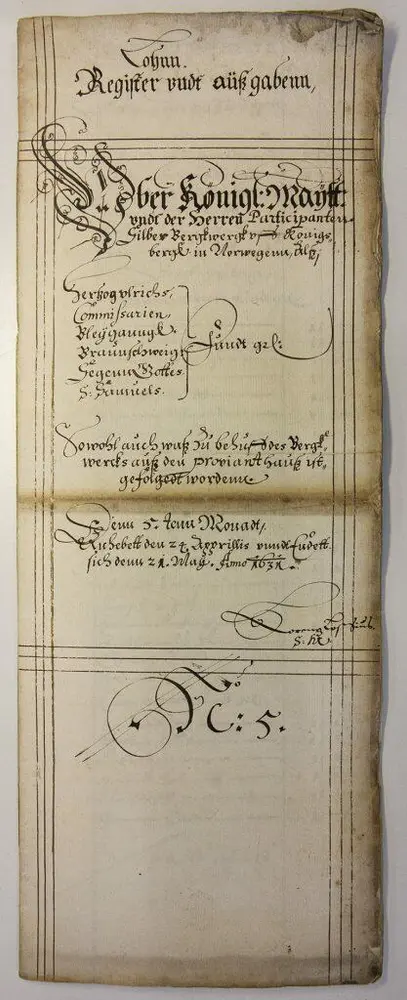 Lohnn.
Register vndt außgabenn,
Vber Königl: Maytt:
vndt der Herren Participanten
Silber Bergkwergk vff Königs,
bergk in Norwegenn, Alß,
Hertzog vlrichs,
Commissarien,
Bleÿgangk,
Braunschweig,
Segenn Gottes
S: Samuels.
Fundt gr:
Sowohl auch waß zu behuff des Bergk
wercks auß den proviant hauß ist
gefolgedt wordenn.
Denn 5. tenn Monadt,
den 24. Apprillis vnndt Endett
sich denn 21. Maÿ. Anno 1631.
S: 
N:
N: 5.